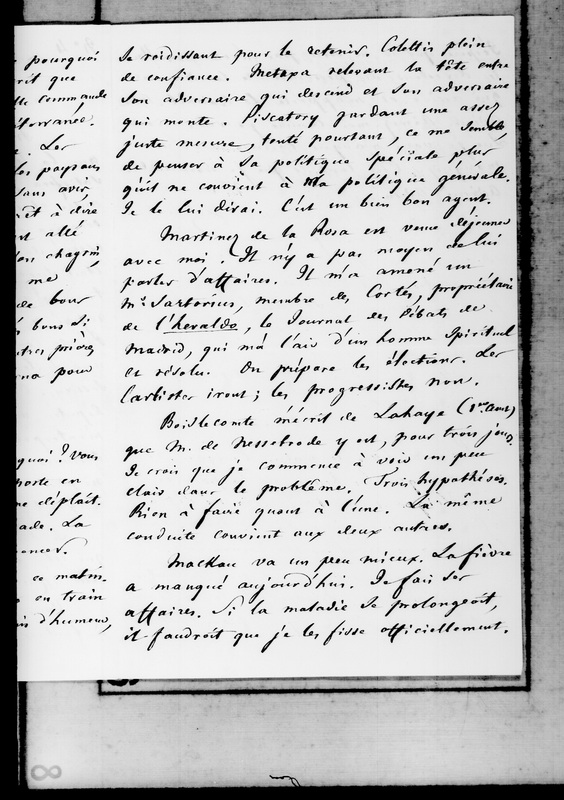 pourquoi
rit que
lle commande
iterranée.
. Les
les paysans
sans avoir
êt à dire
est allé
son chagrin,
me
de bons
bons si
tres prières
pour
quoi ? Vous
porte en
me déplait.
ade. La
ce matin.
en train
d'humeur,
se roidissant pour le retenir. Colettis plein
de confiance. Metaxa relevant la tête entre
son adversaire qui descend et son adversaire
qui monte. Piscatory gardant une assez
juste mesure, tenté pourtant, ce me semble,
de penser à sa politique spéciale plus
qu'il ne convient à ma politique générale.
Je le lui dirai. C'est un bien bon agent.
Martinez de la Rosa est venu déjeuner
avec moi. Il n'y a pas moyen de lui
parler d'affaires. Il m'a amené un
Mr. Sartorius, membre des Cortès, propriétaire
de l'heraldo, le Journal des Débats de
Madrid, qui m'a l'air d'un homme spirituel
et résolu. On prépare les élections. Les
Carlistes iront ; les progressistes non.
Boislecomte m'écrit de Lahaye (1er Aout)
que M. de Nesselrode y est, pour trois jours.
Je crois que je commence à voir un peu
clair dans le problême. Trois hypothéses.
Rien à faire quant à l'une. La même
conduite convient aux deux autres.
Mackau va un peu mieux. La fièvre
a manqué aujourd'hui. Je fais ses
affaires. Si la maladie se prolongeoit,
il faudroit que je les fisse officiellement.